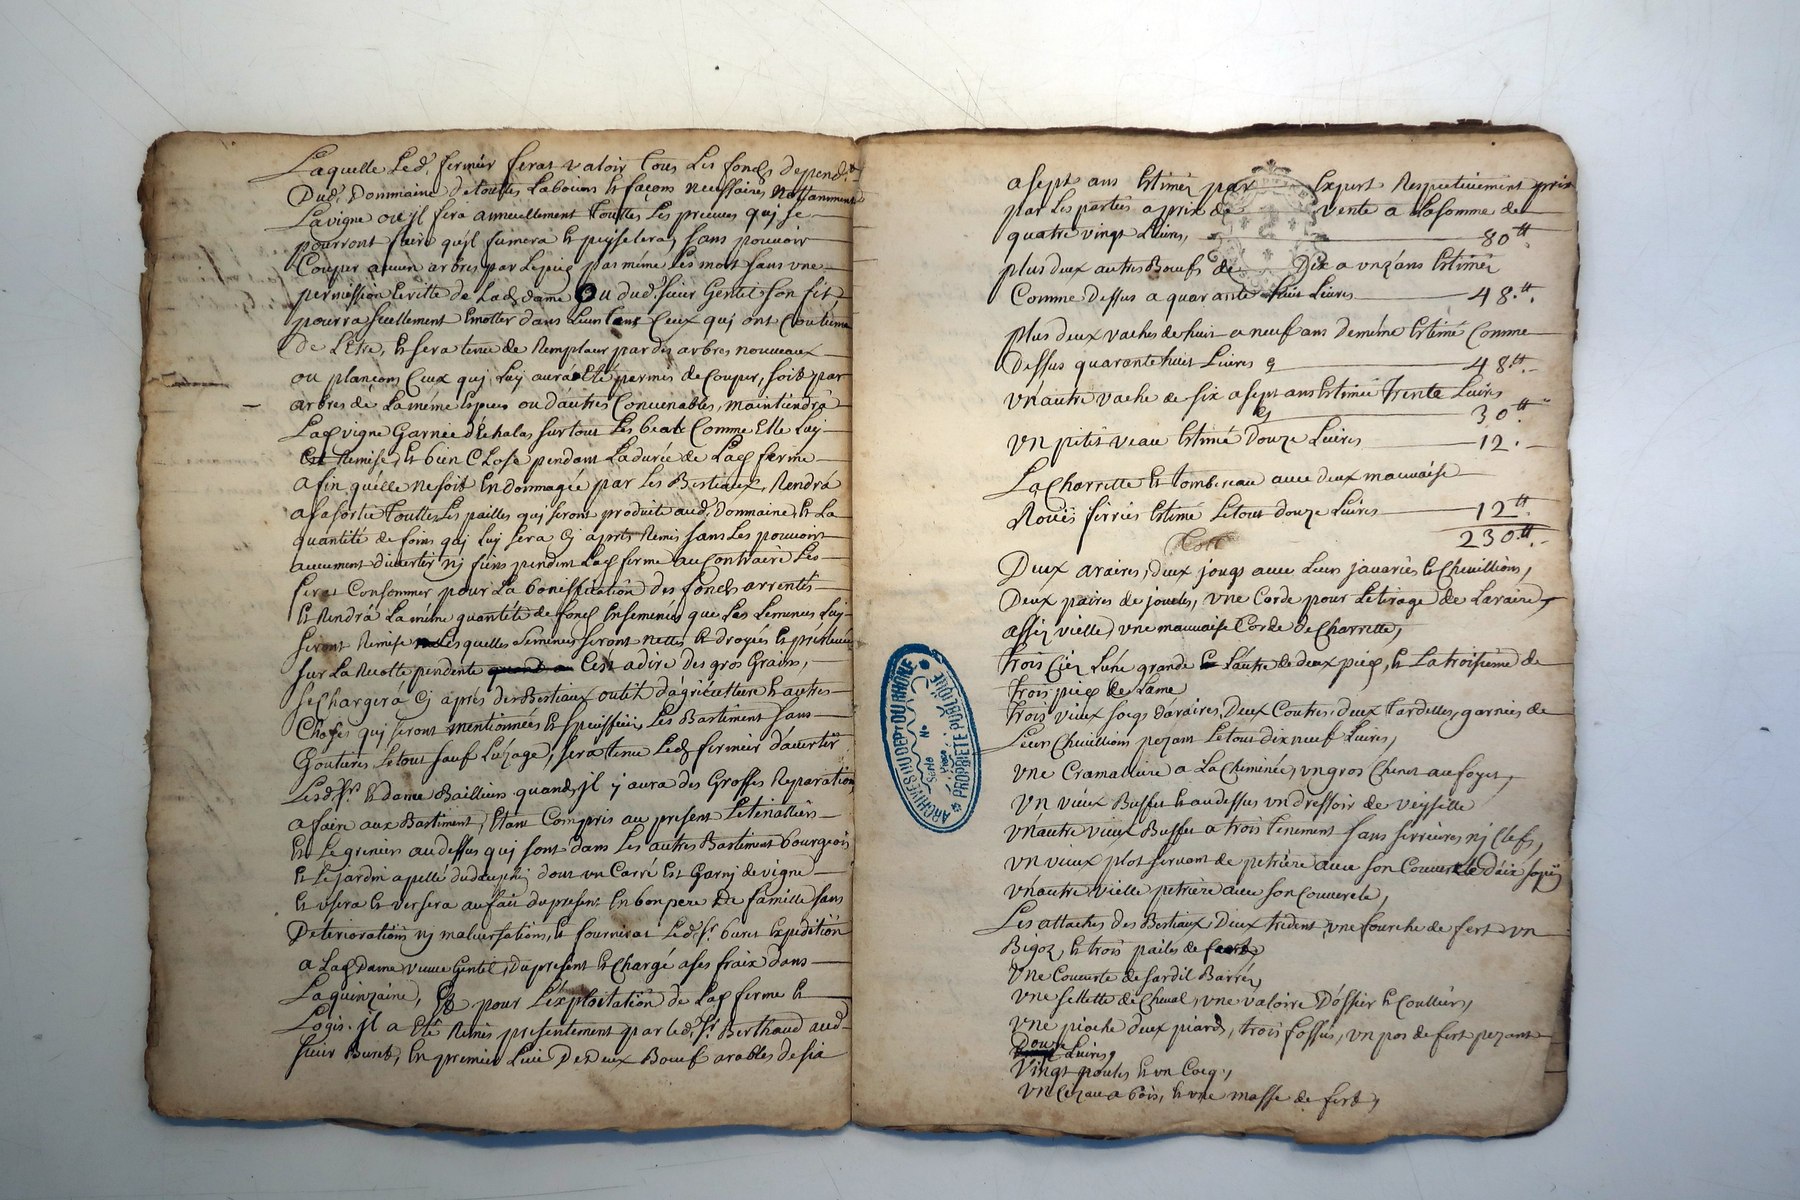 Laquelle led. fermier feras valoir tous les fonds dépend.ts
Dud. Dommaine de touttes Labours et façons necessaires Nottamment
La vigne ou jl fera annuellement touttes les preuves quj se
pourront faire qu'jl fumera et peisselera, sans pouvoir
Couper aucun arbres par le pied pas même les mort sans une
permission Ecritte de Lad. dame Ou dud. sieur Gentil son fils,
pourra seullement Emotter dans Leurs tems Ceux quj ont Coutume
de L'Etre, Et sera tenu de Remplacer par des arbres nouveaux
ou plançons Ceux quj Luy aura Eté permis de Couper, soit par
arbres de La même Espece ou d'autres Convenables, maintiendra
Lad. vigne Garnie d'Echalas surtout Les beate Comme Elle Luy
Est Remise, et bien Close pendant La durée de Lad. ferme
afin qu'elle ne soit Endommagée par Les Bestiaux, Rendra
a sa sortie touttes Les pailles quj seront produite aud. Dommaine, et La
quantité de foins quj Luy sera Cj après Remis sans Les pouvoir
aucunement divertir nj fiens pendent Lad. ferme au Contraire Les
feras Consommer pour La boneffication des fonds arrentés
Et Rendra La même quantité de fonds Ensemencés que Les Semences Luy
seront Remise Lesquelles Semences seront nettes et droyés et prelevée
sur La Recolte pendente C'est adire des gros Grains,
se Chargera Cj après des Bestiaux outil d'agriculture et autres
Choses quj seront mentionnées et speciffiées, Les Bastiment sans
Goutieres Letout sauf Luzage, sera tenu Led. fermier d'avertir
Lesd. Sr. et dame Bailleurs quand jl y aura des Grosses Reparations
a faire aux Bastiment, Etant Compris au présent
Et Le grenier au dessus quj sont dans Les autres Bastiment bourgeois
Et Le Jardin apellé du dauphin dont un Carré Est Garnj de vigne
Et usera et versera au fait du présent En bon pere de famille sans
Déteriorations nj malversations, et fournira Led. Sr. buret Expedition
a Lad. Dame veuve Gentil, du présent Et Chargé a ses fraix dans
La quinzaine, Et pour L'exploitation de Lad. ferme et
Logis. jl a Eté Remis presentement par led. Sr. Berthaud aud.
sieur Buret, En premier Lieu Des Deux Bœuf arables de six
a sept ans Estimés par Expert Respectivement pris
par Les parties a prix de vente a La somme de
quatre vingt Livres, 80 tt.
plus deux autres Bœufs de Dix a unz'ans Estimés
Comme Dessus a quarante huit Livres 48. tt.
plus deux vaches de huit a neuf ans de même Estimé Comme
Dessus quarante huit Livres Cj 48. tt.
un autre vache de six a sept ans Estimée trente Livres
Cj 30. tt
un petit veau Estimé Douze Livres 12.
La Charrette et tombereau avec deux mauvaise
Rouës ferrées Estimé Letout douze Livres 12 tt.
230. tt.
Deux araires, deux jougs avec Leurs javaries et Chevillions,
Deux paires de joucles, une Corde pour Letirage de Laraire,
assez vielle, une mauvaise Corde de Charrette,
trois Ciez L'une grande L'autre de deux pied, et La troisieme de
trois pied de Lame
trois vieux socqs d'araires, Deux Coutres deux tardelles, garnies de
Leurs Chevillions pezant Letout dix neuf Livres,
une Cramalliere a La Cheminée, un gros Chenet au foyer,
un vieux Buffet et au dessus un dressoir de veisselle
un autre vieux Buffet a trois tenement sans serrures nj Clefs,
un vieux plot servant de petrière avec son Couvercle
un autre vielle petrière avec son Couvercle,
Les attaches des Bestiaux, Deux trident, une fourche de fert un
Bigoz, et trois pailes de fert,
une Couverte de fardil Barrée,
une sellette de Cheval, une valoire D'ossier et Coullier,
une pioche deux piards, trois fossus, un pos de fert pezant
Douze Livres,
Vingt poules et un Cocq,
un Cizeau a bois, et une masse de fert,
ARCHIVES DU DEPT DU RHÔNE
Serie
No
Pièce
PROPRIÉTÉ PUBLIQUE